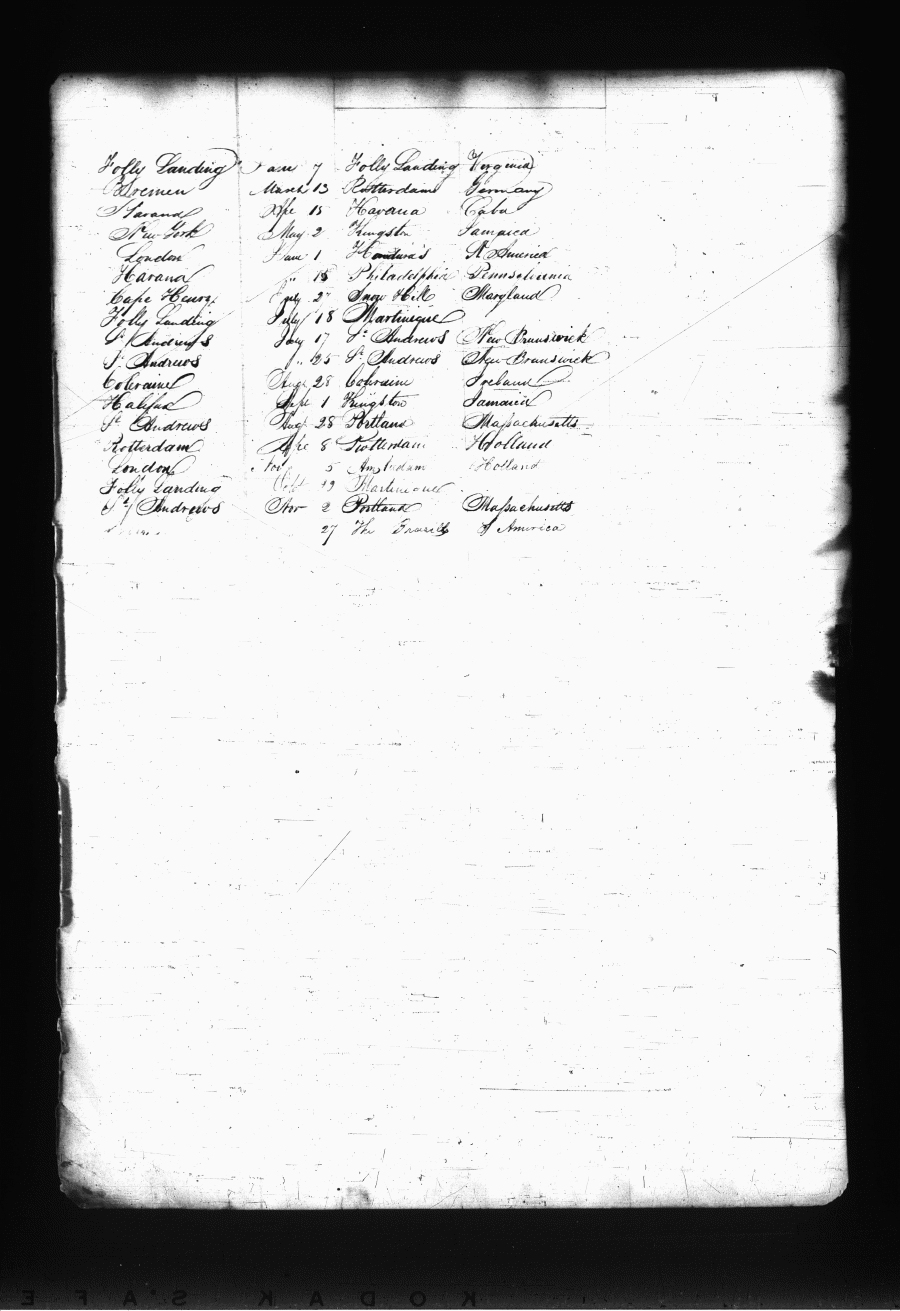 Folly Landing June 7 Folly Landing Virginia
Bremen March 13 Rotterdam Germany
Havana Apr 15 Havana Cuba
New York May 2 Kingston Jamaica
London June 1 Honduras St America
Havana " 15 Philadelphia Pennselvenia
Cape Henry July 27 Snow Hill Maryland
Folly Landing July 18 Martinique
St Andrews July 17 St Andrews New Brunswick
St Andrews " 25 St Andrews New Brunswick
Colraine Aug 28 Colraine Ireland
Halifax Sept 1 Kingston Jamaica
St Andrews Aug 28 Portland Massachusetts
Rotterdam Apr 8 Rotterdam Holland
London Nov 5 Amsterdam Holland
Folly Landing Oct 19 Martineque
St Andrews Nov 2 Portland Massachusetts
27 The Brazills of America
KODAK SAFE